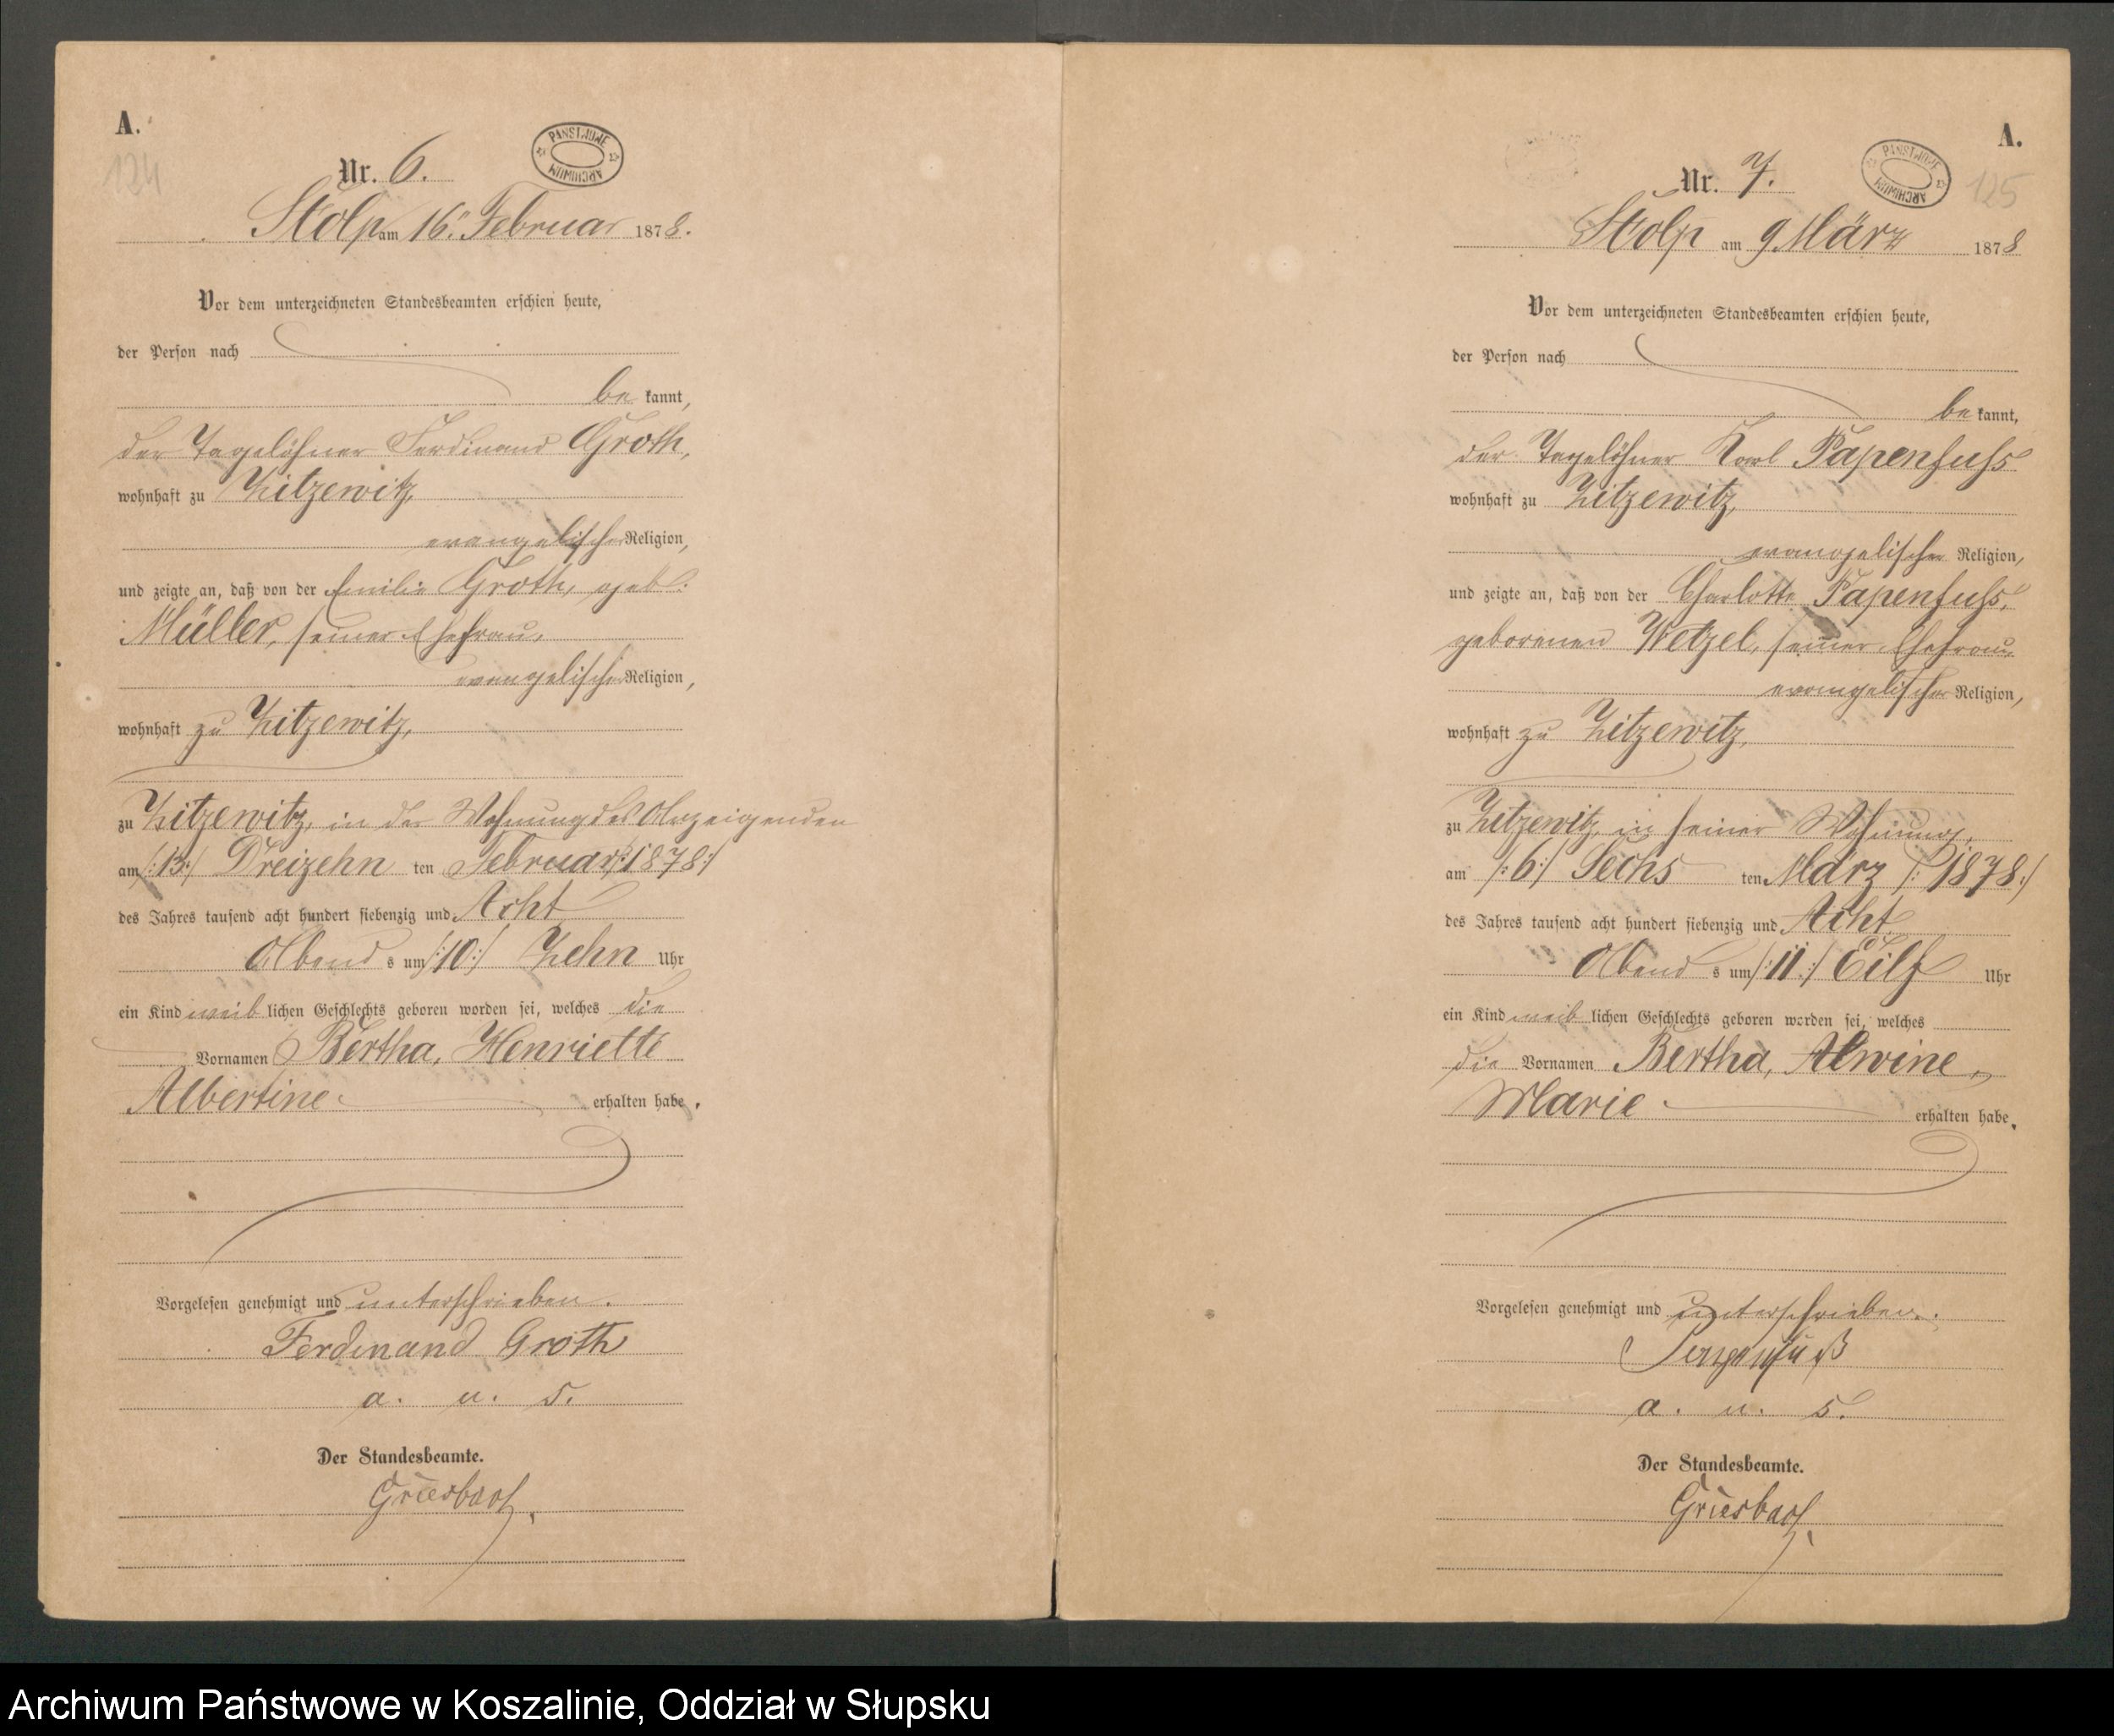 A.
124
Nr. 6.
PANSTWOWE ARCHIWUM
Stolp am 16. Februar 1878.
Vor dem unterzeichneten Standesbeamten erschien heute,
der Person nach
be kannt,
der Tagelöhner Ferdinand Groth,
wohnhaft zu Zitzewitz,
evangelischer Religion,
und zeigte an, daß von der Emilie Groth, geb.
Müller, seiner Ehefrau,
evangelischer Religion,
wohnhaft zu Zitzewitz,
zu Zitzewitz, in der Wohnung des Anzeigenden
am /:13:/ Dreizehn ten Februar /:1878:/
des Jahres tausend acht hundert siebenzig und Acht
Abend s um /:10:/ Zehn Uhr
ein Kind weib lichen Geschlechts geboren worden sei, welches die
Vornamen Bertha, Henriette
Albertine erhalten habe.
Vorgelesen genehmigt und unterschrieben.
Ferdinand Groth
a. u. s.
Der Standesbeamte.
Griesbach
A.
125
Nr. 7.
PANSTWOWE ARCHIWUM
Stolp am 9 März 1878
Vor dem unterzeichneten Standesbeamten erschien heute,
der Person nach
be kannt,
der Tagelöhner Karl Papenfuss
wohnhaft zu Zitzewitz,
evangelischer Religion,
und zeigte an, daß von der Charlotte Papenfuss,
geborenen Wetzel, seiner Ehefrau,
evangelischer Religion,
wohnhaft zu Zitzewitz,
zu Zitzewitz, in seiner Wohnung,
am /:6:/ Sechs ten März /:1878:/
des Jahres tausend acht hundert siebenzig und Acht
Abend s um /:11:/ Eilf Uhr
ein Kind weib lichen Geschlechts geboren worden sei, welches
die Vornamen Bertha, Alwine,
Marie erhalten habe.
Vorgelesen genehmigt und unterschrieben.
Papenfuß
a. u. s.
Der Standesbeamte.
Griesbach
Archiwum Państwowe w Koszalinie, Oddział w Słupsku